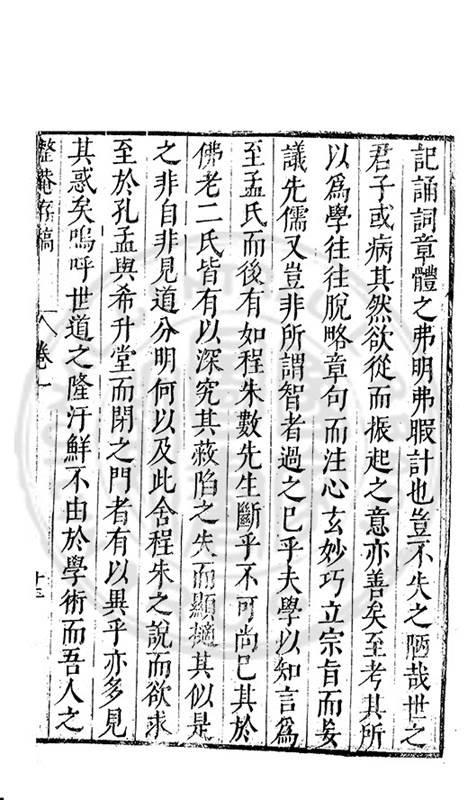 記誦詞章體之弗明弗暇計也豈不失之陋哉世之
君子或病其然欲從而振起之意亦善矣至考其所
以爲學往往脫略章句而注心玄妙巧立宗旨而妄
議先儒又豈非所謂智者過之已乎夫學以知言爲
至孟氏而後有如程朱數先生斷乎不可尚已其於
佛老二氏皆有以深究其蔽陷之失而顯擿其似是
之非自非見道分明何以及此舍程朱之說而欲求
至於孔孟與希升堂而閉之門者有以異乎亦多見
其惑矣嗚呼世道之隆汙鮮不由於學術而吾人之
整菴存稿 卷一 十三